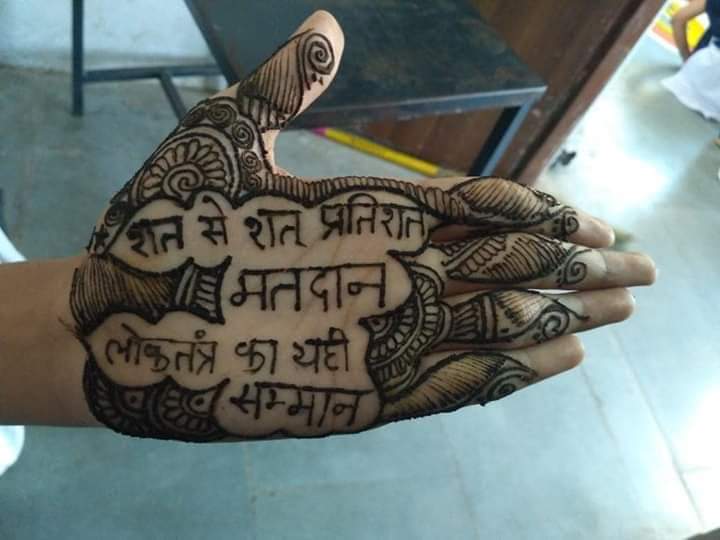 शत से शत् प्रतिशत
मतदान
लोकतंत्र का यही
सम्मान